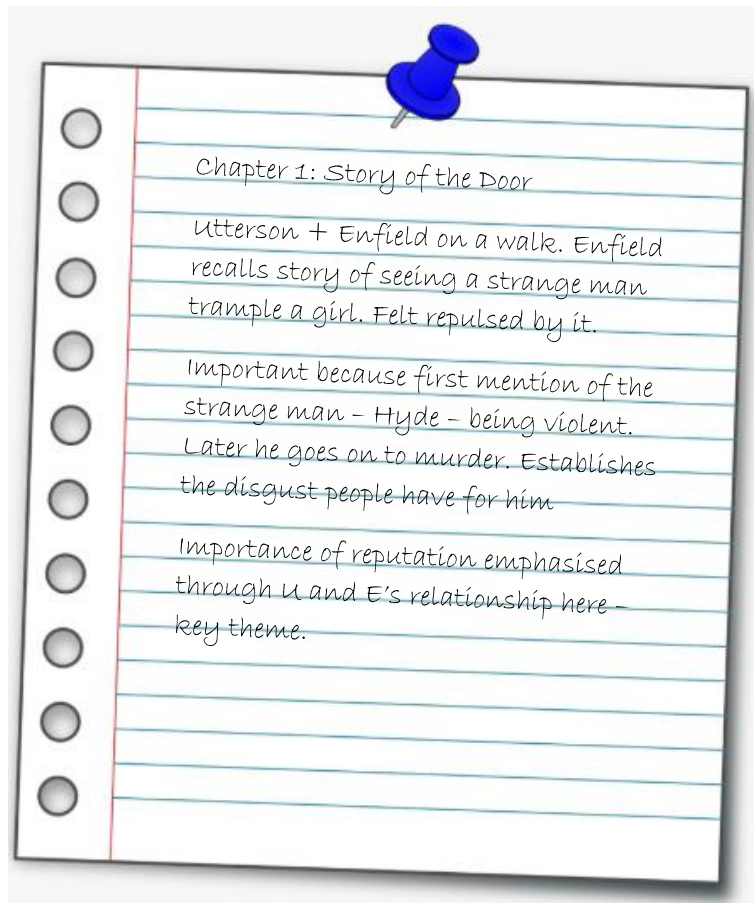 Chapter 1: Story of the Door
Utterson + Enfield on a walk. Enfield
recalls story of seeing a strange man
trample a girl. Felt repulsed by it.
Important because first mention of the
strange man – Hyde – being violent.
Later he goes on to murder. Establishes
the disgust people have for him
Importance of reputation emphasised
through U and E's relationship here –
key theme.